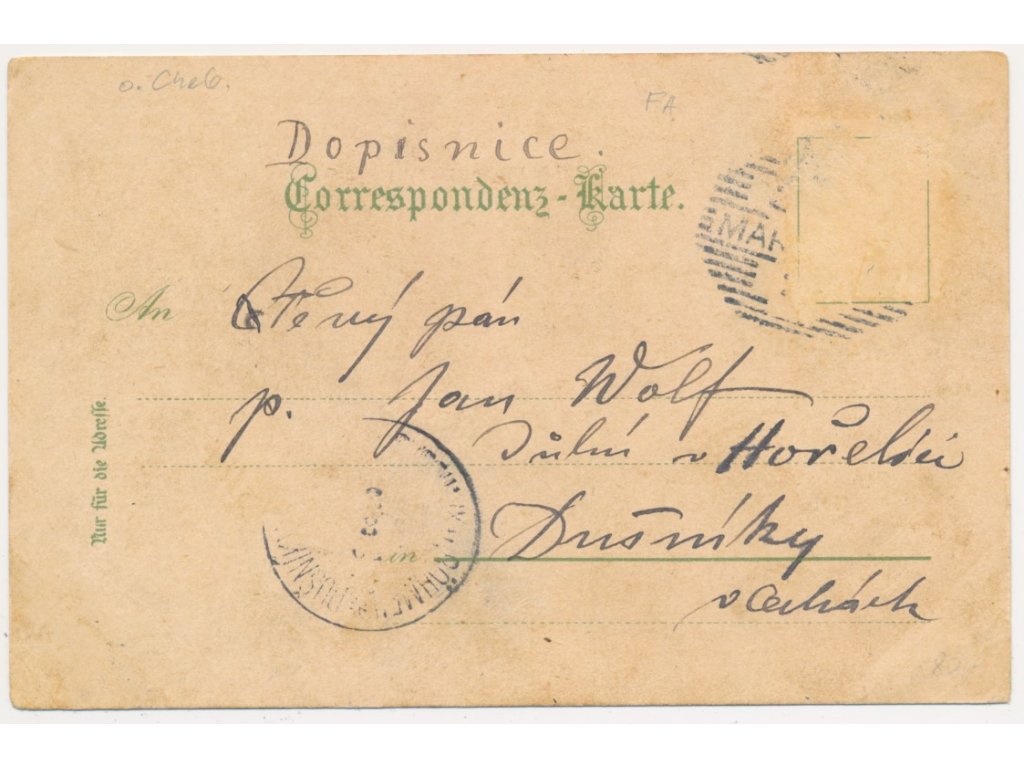 o. Cheb.
FA
Dopisnice.
Correspondenz-Karte.
MAR
An
Ctěný pán
p. Jan Wolf
Důlní v Hořelici
in Dušníky
v Čechách
Nur für die Adresse.